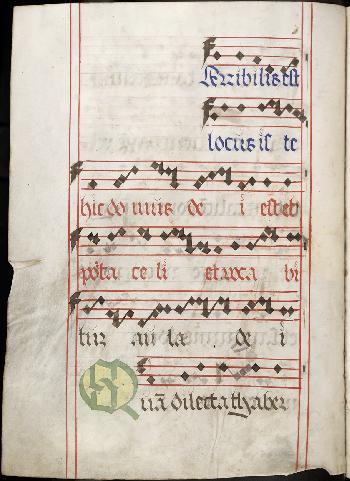 Erribilis est
locus is te
hic do mus de i est et
porta ce li et voca bi
tur au la de i
Quā dilecta thaber